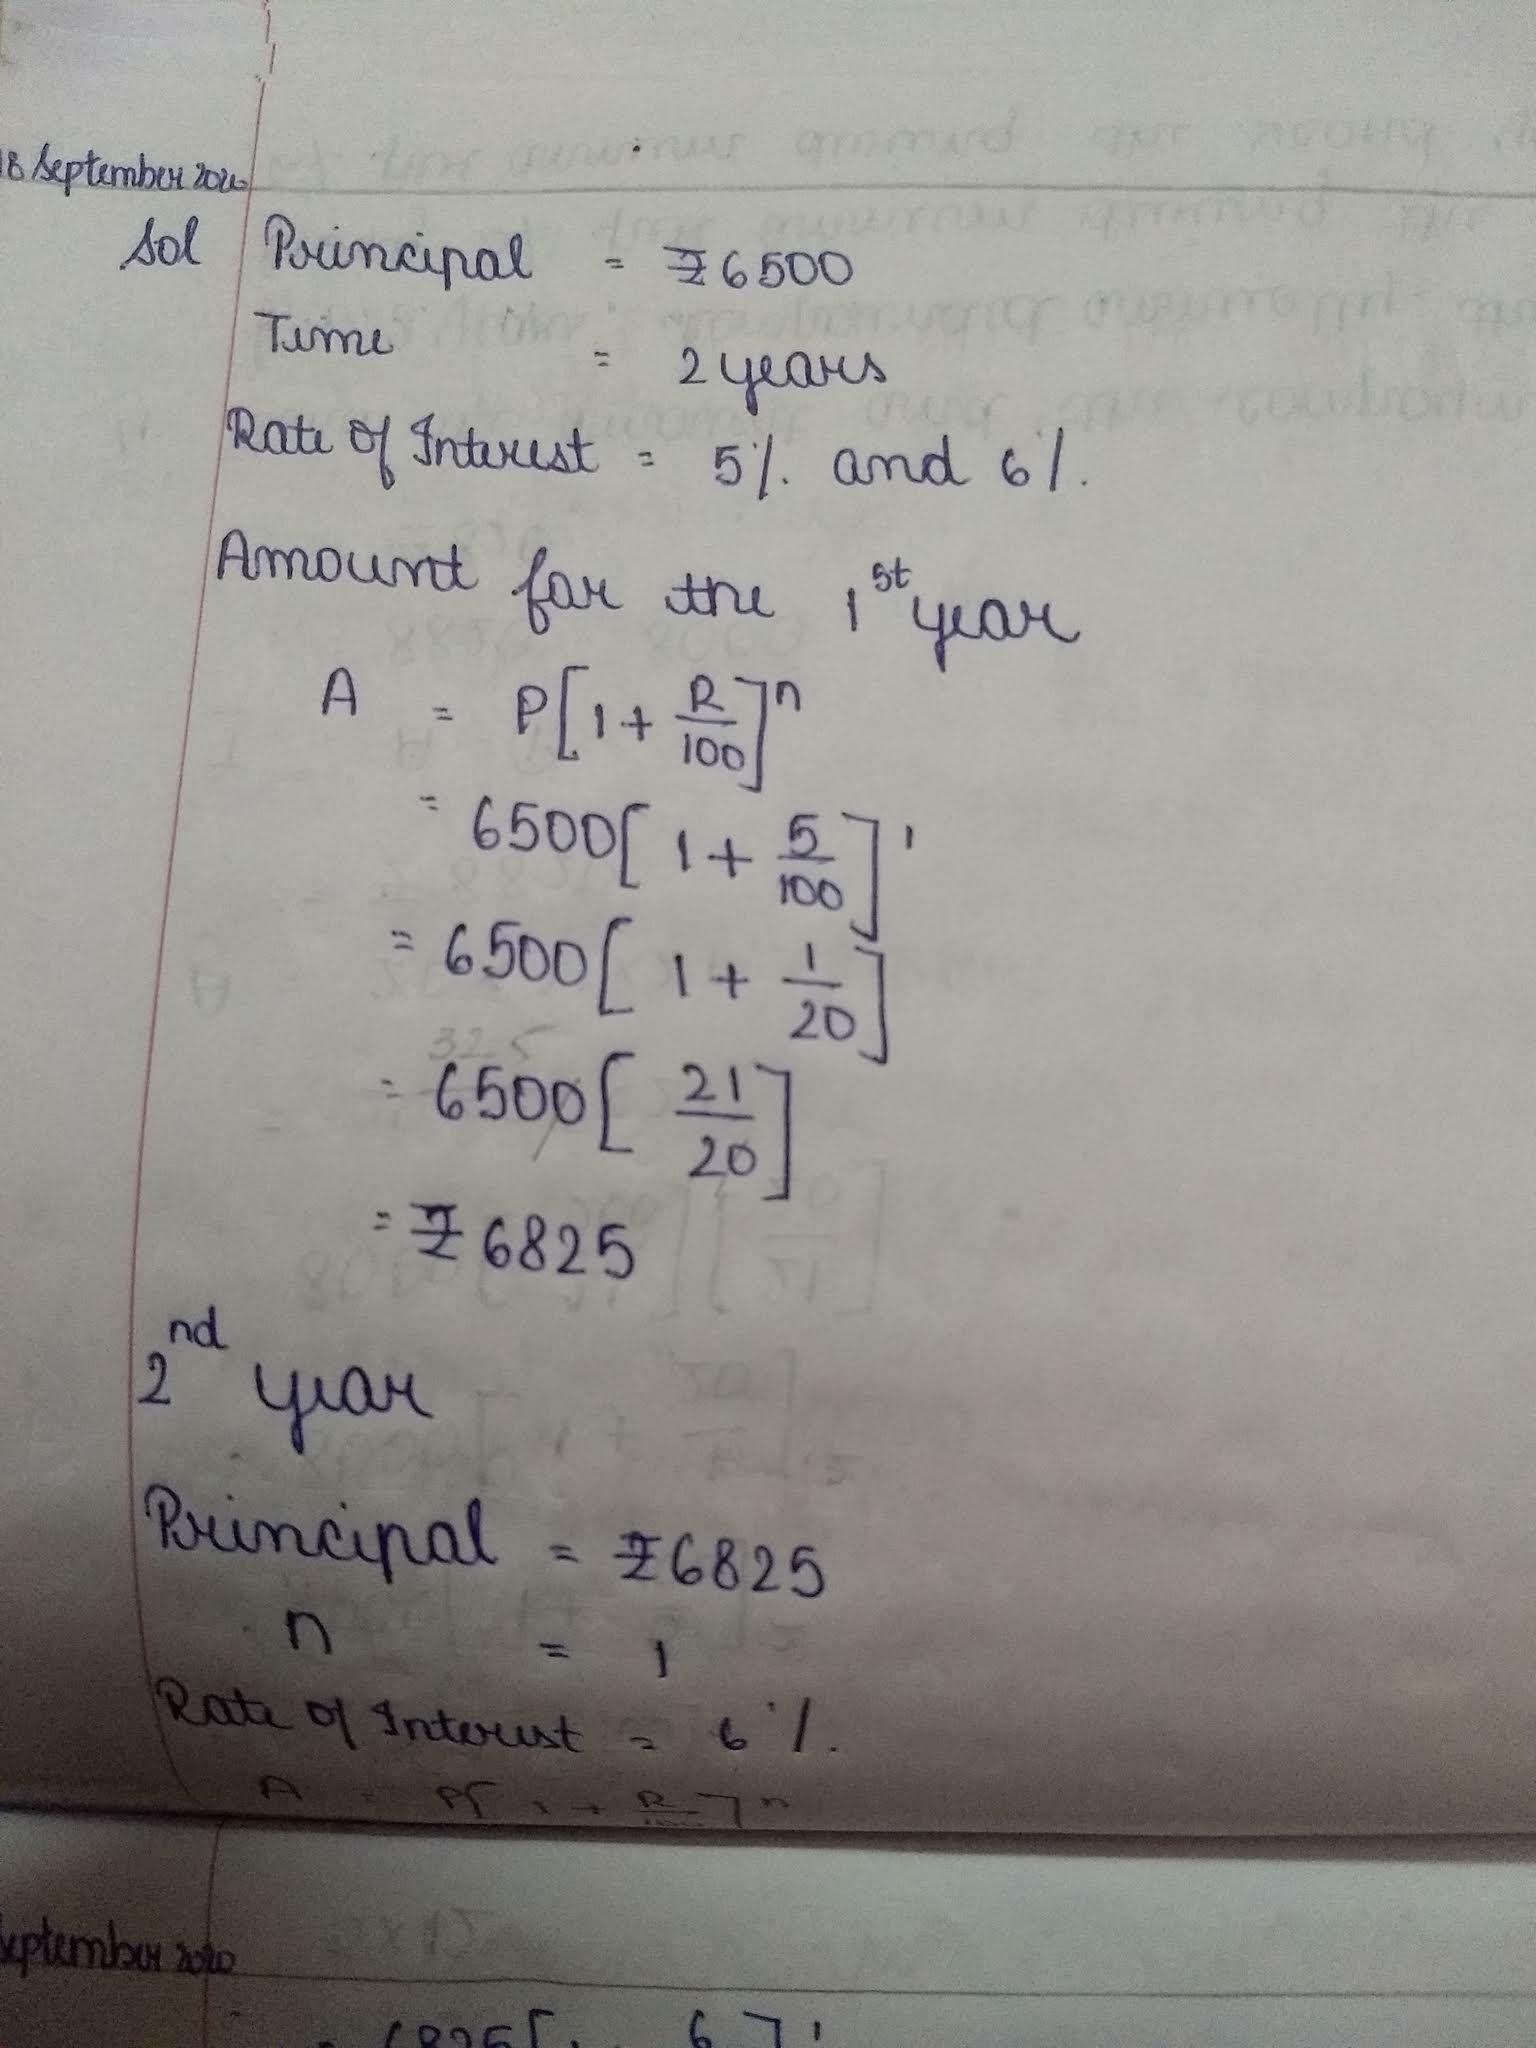 18 September 2020
Sol Principal = ₹6500
Time = 2 years
Rate of Interest = 5% and 6%.
Amount for the 1st year
A = P[1 + R/100]^n
= 6500[1 + 5/100]^1
= 6500[1 + 1/20]
325
= 6500[21/20]
= ₹6825
2nd year
Principal = ₹6825
n = 1
Rate of Interest = 6%.
A = P[1 + R/100]^n
September 2020
= 6825[1 6 ]^1